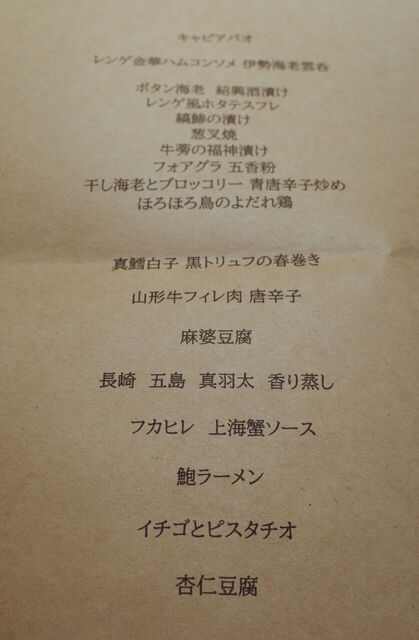 キャビアパオ
レンゲ金華ハムコンソメ 伊勢海老雲呑
ボタン海老 紹興酒漬け
レンゲ風ホタテスフレ
縞鯵の漬け
葱叉焼
牛蒡の福神漬け
フォアグラ 五香粉
干し海老とブロッコリー 青唐辛子炒め
ほろほろ鳥のよだれ鶏
真鱈白子 黒トリュフの春巻き
山形牛フィレ肉 唐辛子
麻婆豆腐
長崎 五島 真羽太 香り蒸し
フカヒレ 上海蟹ソース
鮑ラーメン
イチゴとピスタチオ
杏仁豆腐